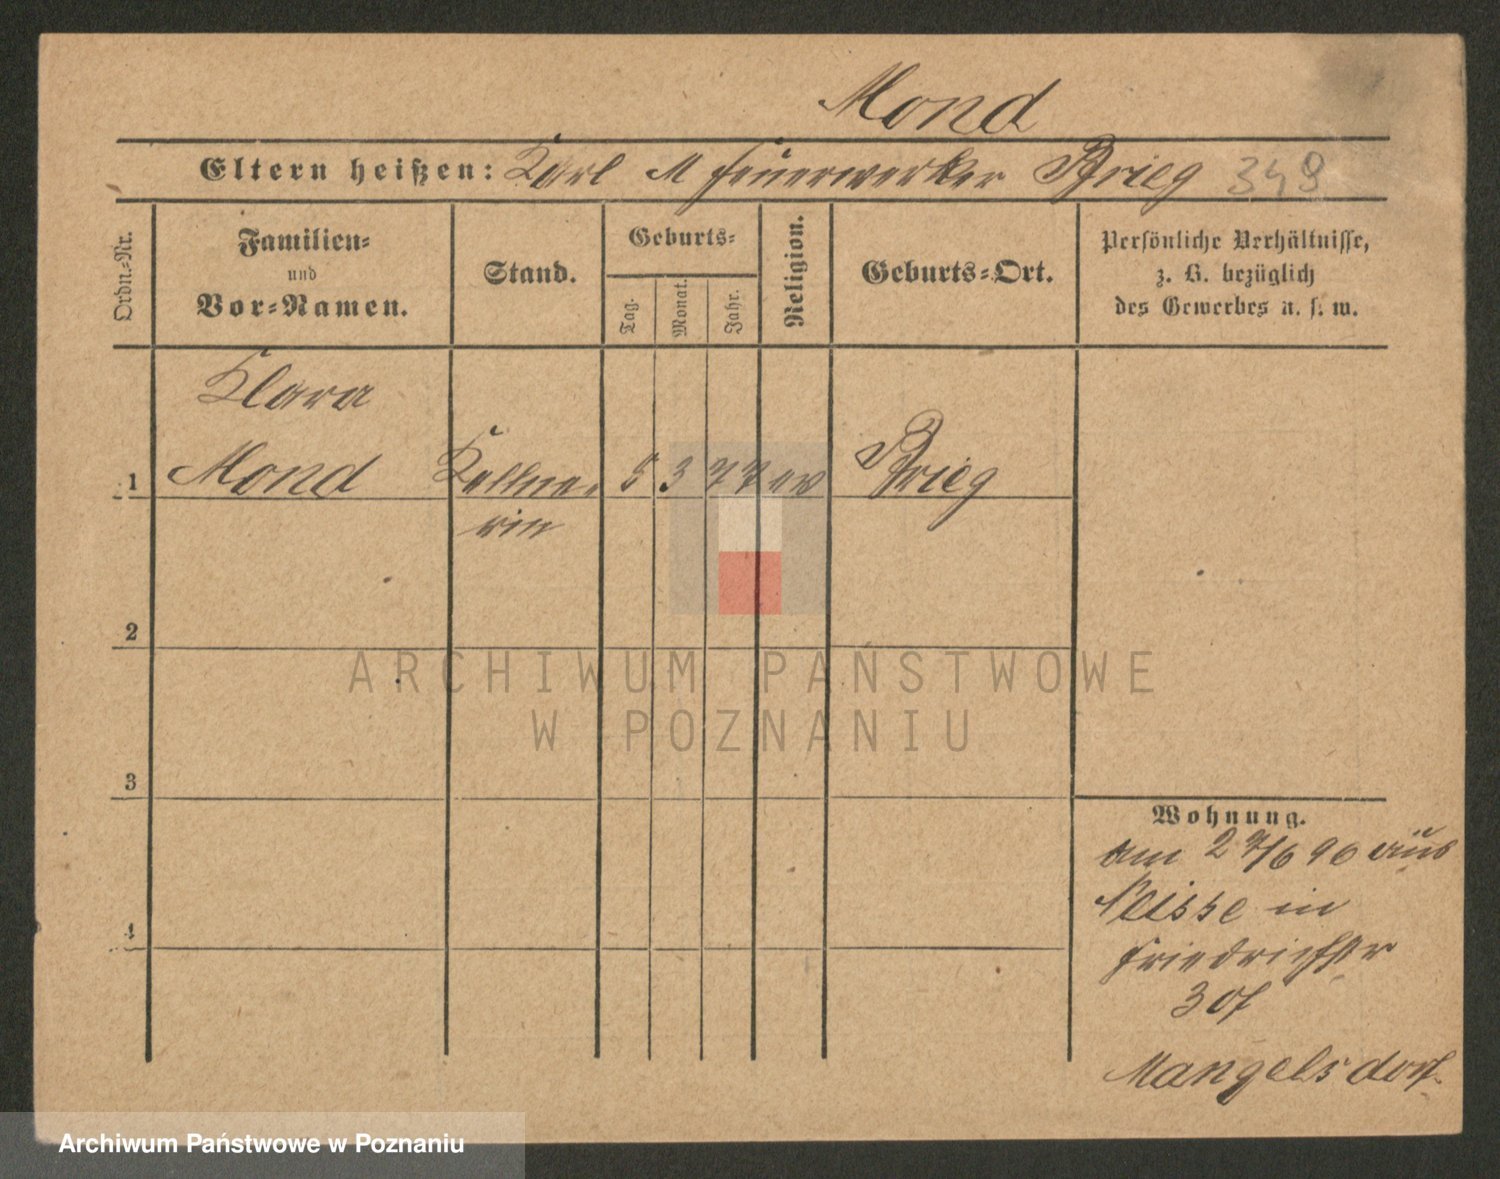 Mond
Eltern heißen: Karl M Feuerwerker Brieg 349
Ordn.-Nr.
Familien-
und
Vor-Namen.
Stand.
Geburts-
Tag.
Monat.
Jahr.
Religion.
Geburts-Ort.
Persönliche Verhältnisse,
z. B. bezüglich
des Gewerbes u. s. w.
Klara
1 Mond Kellne- 5 3 77 ev Brieg
rin
2
3
4
Wohnung.
am 27/6 96 aus
Neisse in
Friedrichstr
30
Mangelsdorf
ARCHIWUM PAŃSTWOWE
W POZNANIU
Archiwum Państwowe w Poznaniu